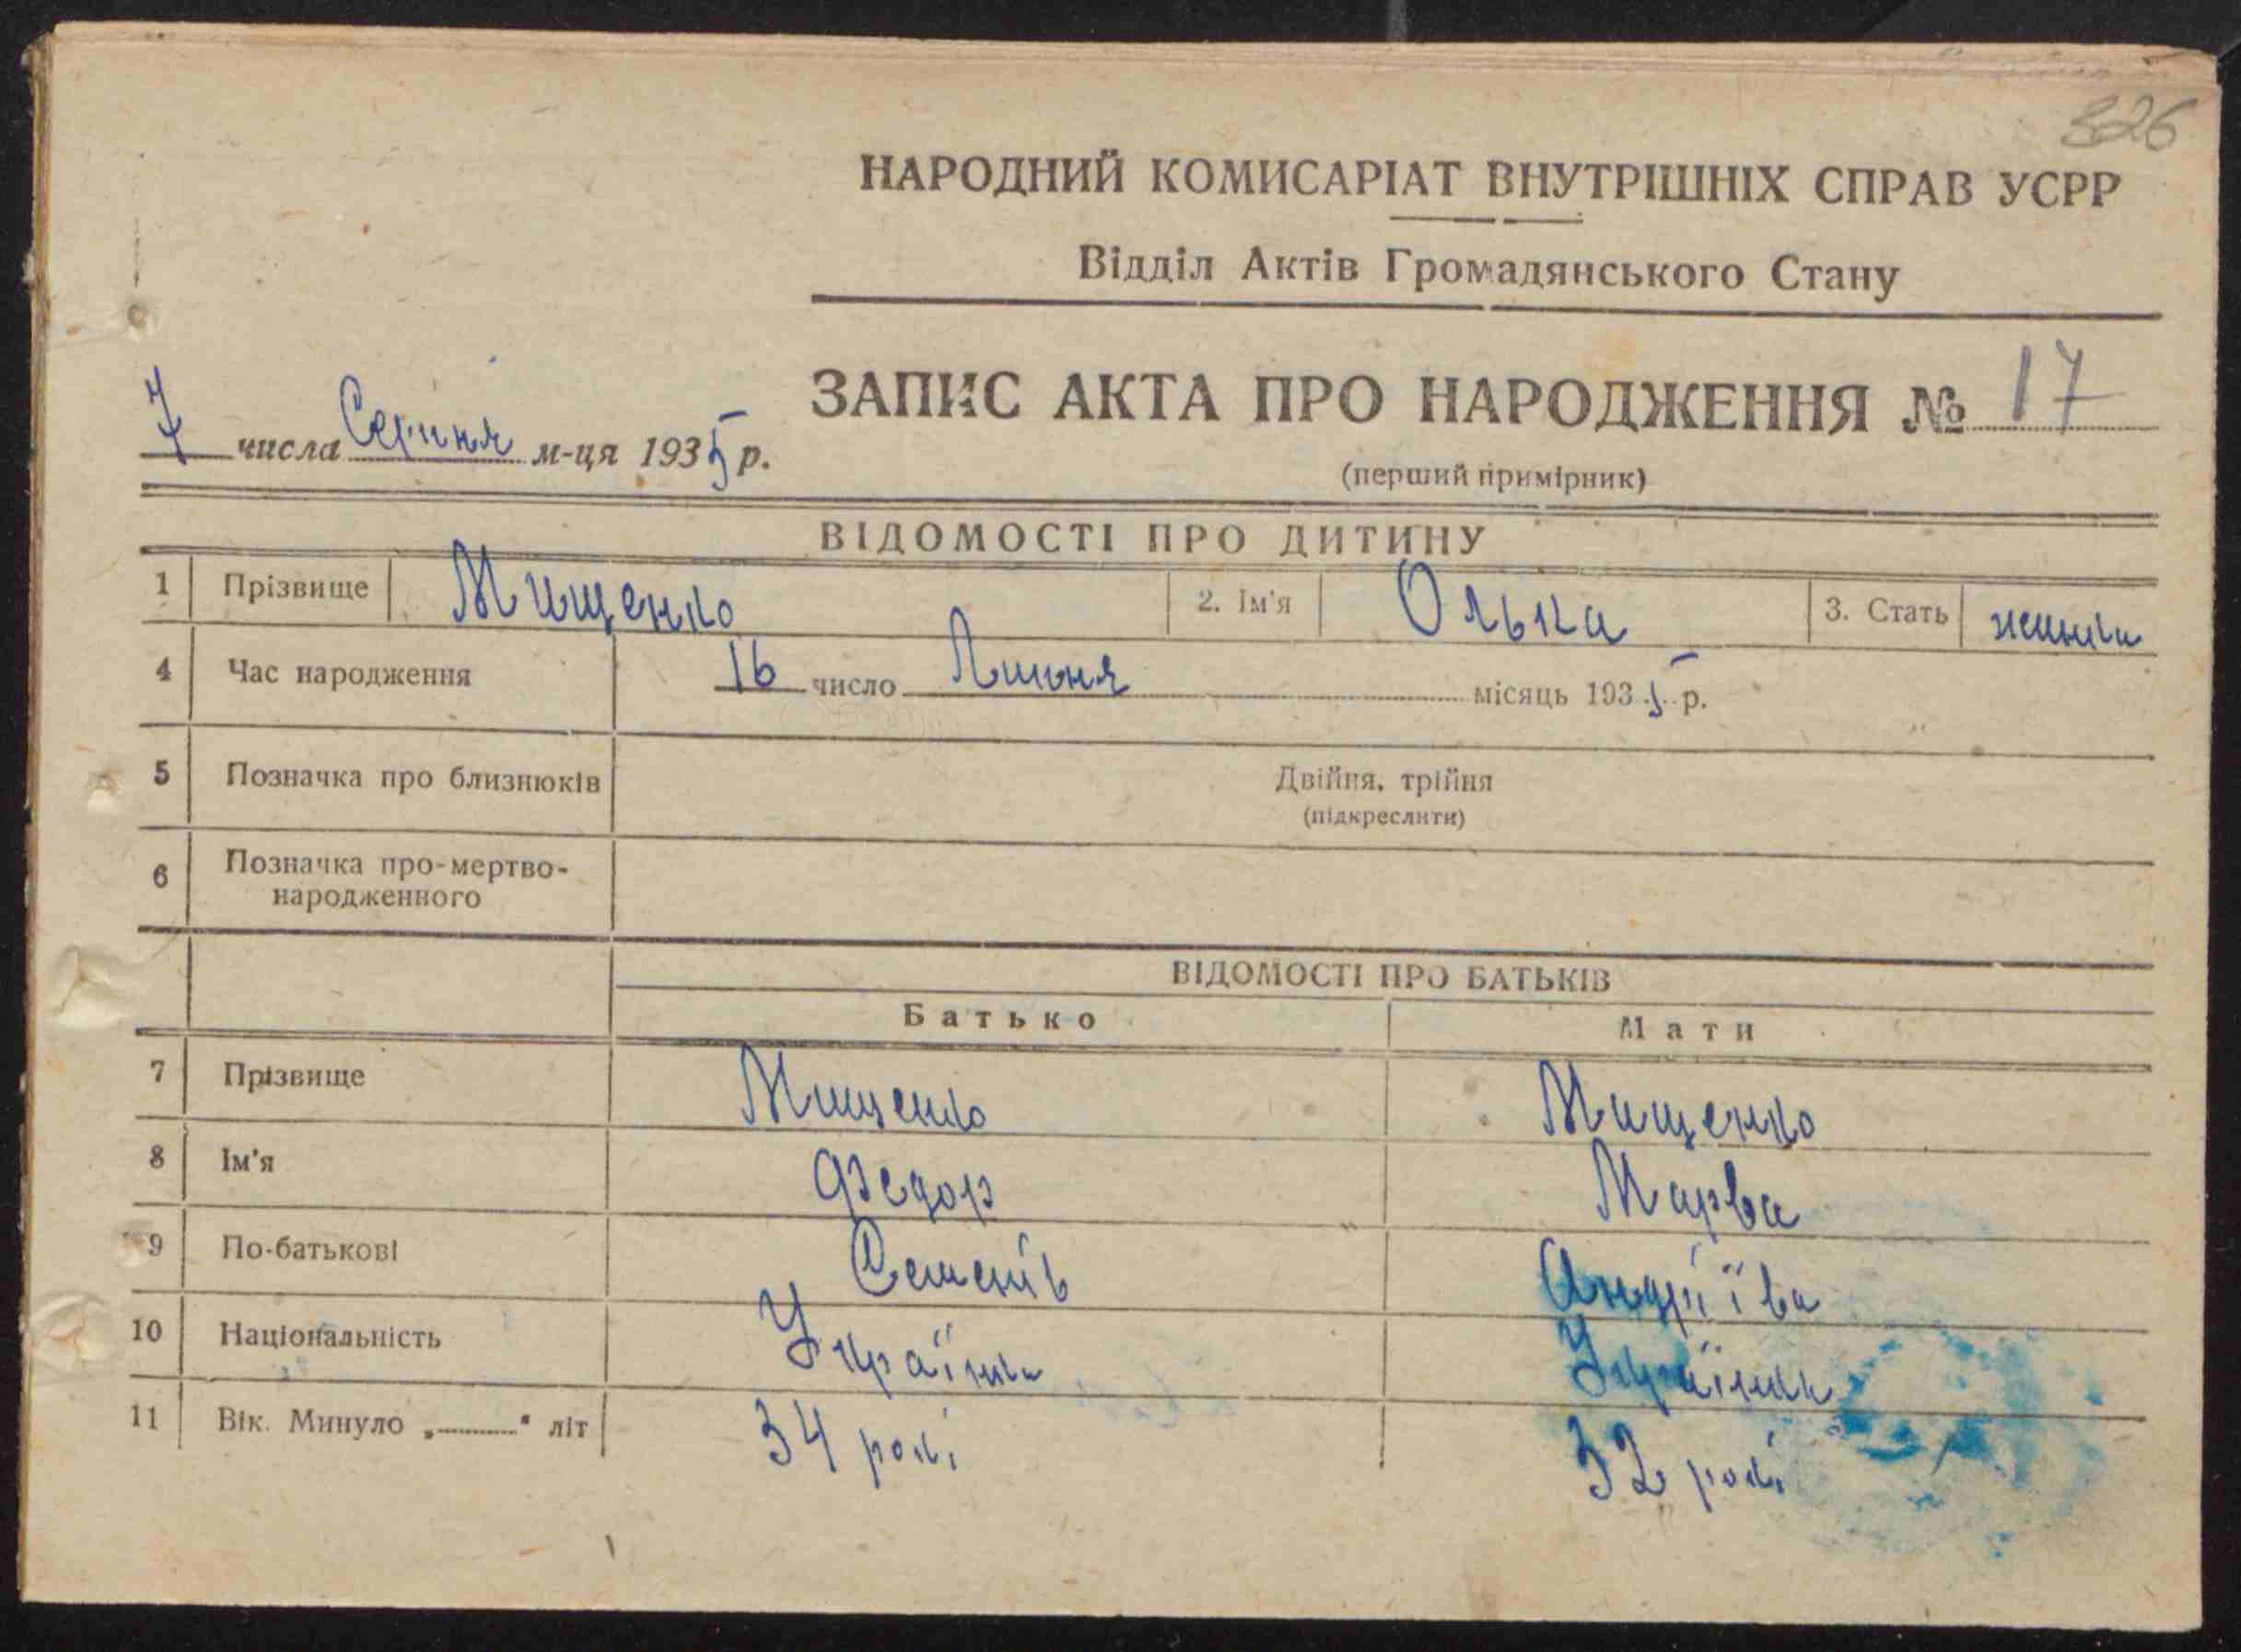 326
НАРОДНИЙ КОМИСАРІАТ ВНУТРІШНІХ СПРАВ УСРР
Відділ Актів Громадянського Стану
ЗАПИС АКТА ПРО НАРОДЖЕННЯ № 17
7 числа Серпня м-ця 1935 р.
(перший примірник)
ВІДОМОСТІ ПРО ДИТИНУ
1 Прізвище Мищенко 2. Ім'я Олька 3. Стать
4 Час народження 16 число Липня місяць 1935 р.
5 Позначка про близнюків Двійня, трійня
(підкреслити)
6 Позначка про-мертво-
народженного
ВІДОМОСТІ ПРО БАТЬКІВ
Батько Мати
7 Прізвище Мищенко Мищенко
8 Ім'я Федор Марва
9 По-батькові Семенів Андріїва
10 Національність Україн. Українка
11 Вік. Минуло „ “ літ 34 рокі 32 рокі